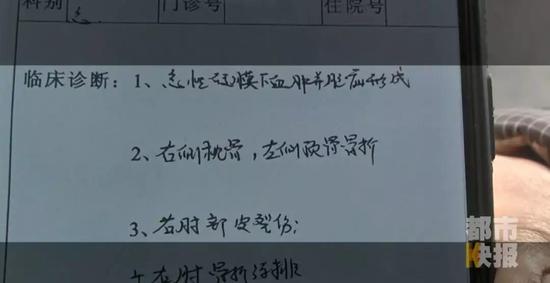 科别 急 门诊号 住院号
临床诊断：1、急性硬膜下血肿并脑疝形成
2、右侧枕骨，左侧颞骨骨折
3、右肘部皮裂伤；
4、右肘骨折待排
都市
快报